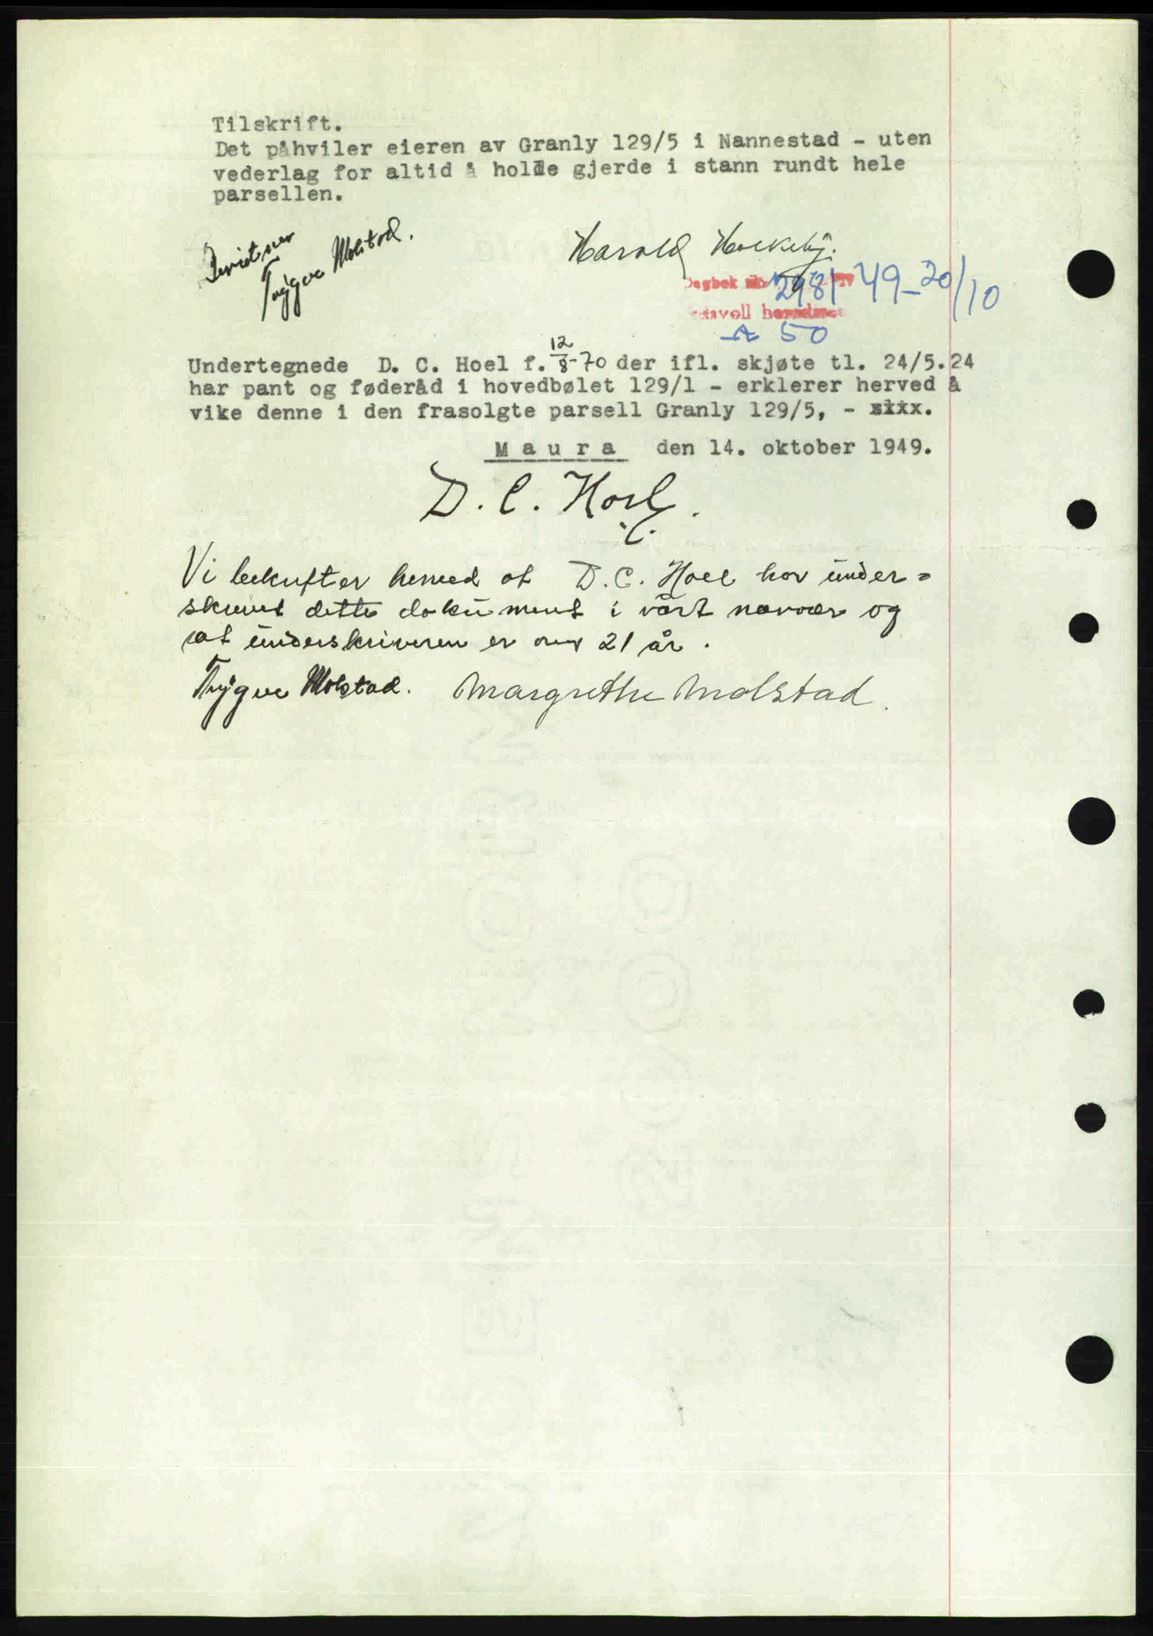 Tilskrift.
Det påhviler eieren av Granly 129/5 i Nannestad - uten
vederlag for altid å holde gjerde i stann rundt hele
parsellen.
Trygve Molstad.
Harald
Dagbok 2981 49-20/10
A 50
Undertegnede D. C. Hoel f. 12/8-70 der ifl. skjøte tl. 24/5.24
har pant og føderåd i hovedbølet 129/1 - erklerer herved å
vike denne i den frasolgte parsell Granly 129/5, -
Maura den 14. oktober 1949.
D. C. Hoel.
Vi bekrefter herved at D. C. Hoel har under=
skrevet dette dokument i vårt nærvær og
at underskriveren er over 21 år.
Trygve Molstad. Margrethe Molstad.